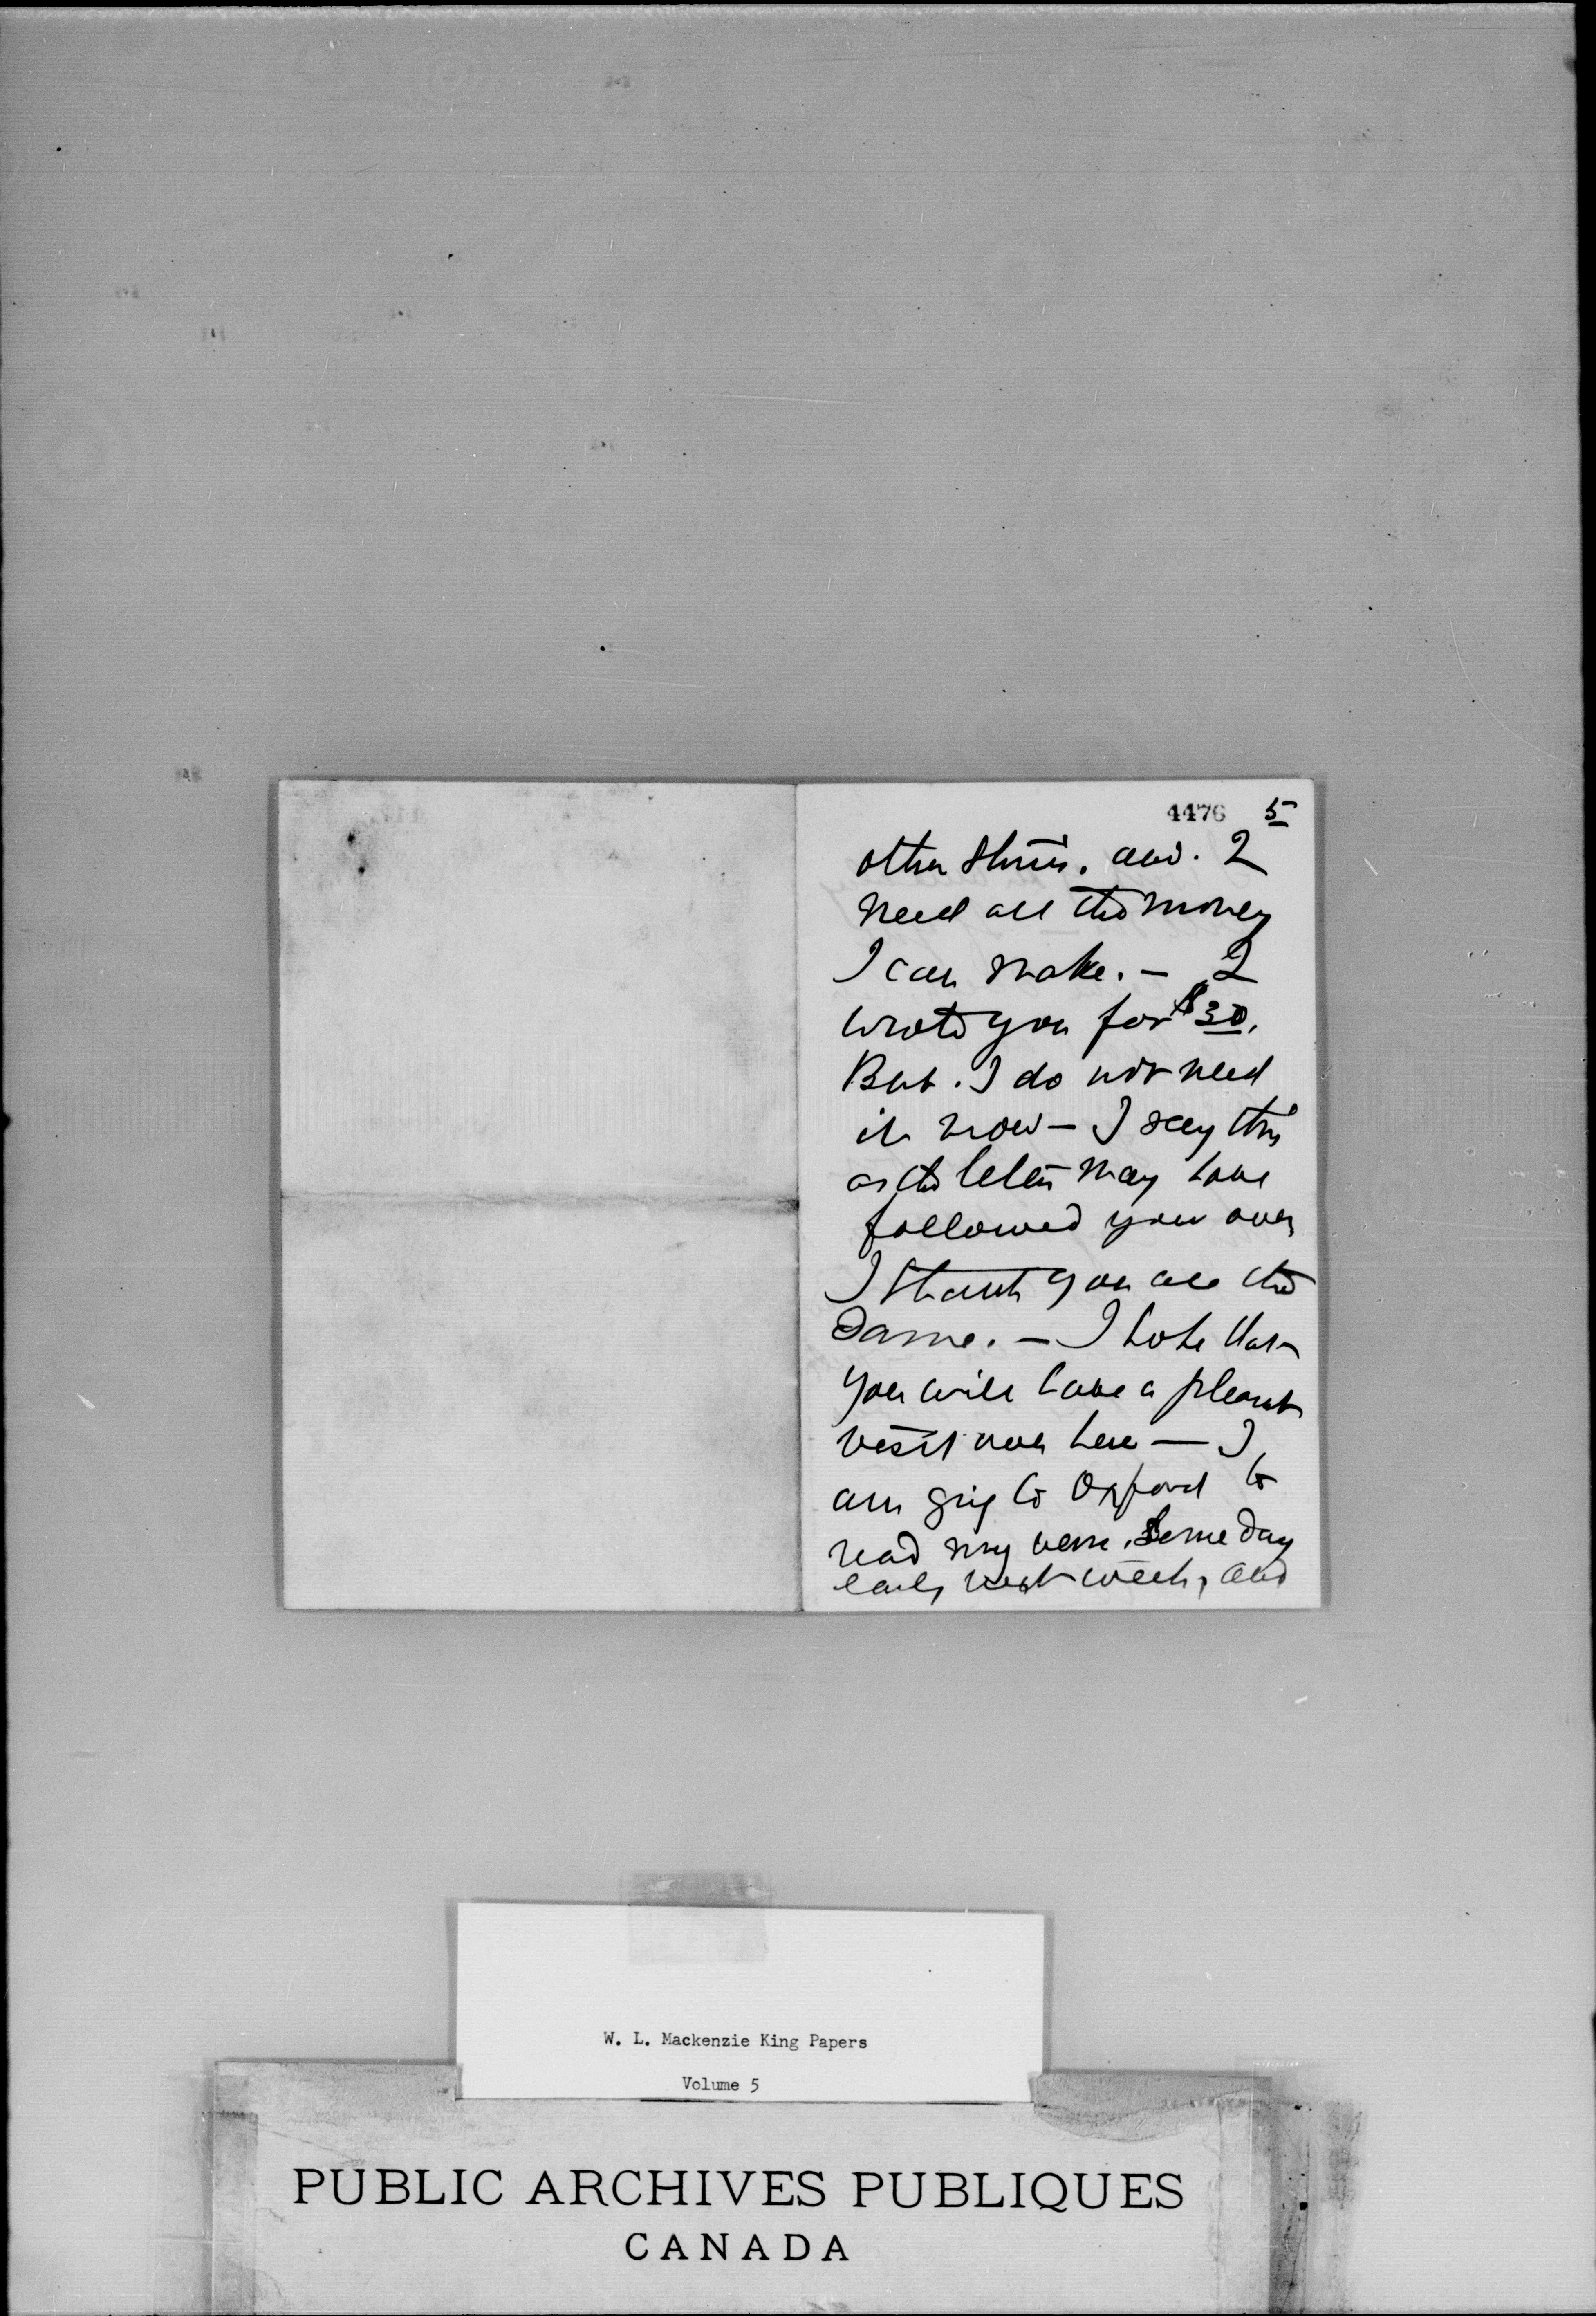 4476 5
other things. and. I
need all the money
I can make. — I
wrote you for $30.
But. I do not need
it now — I say this
as the letter may have
followed you over
I thank you all the
same. — I hope that
you will have a pleasant
visit over here — I
am going to Oxford to
read my verse. Some day
early next week, and
W. L. Mackenzie King Papers
Volume 5
PUBLIC ARCHIVES PUBLIQUES
CANADA